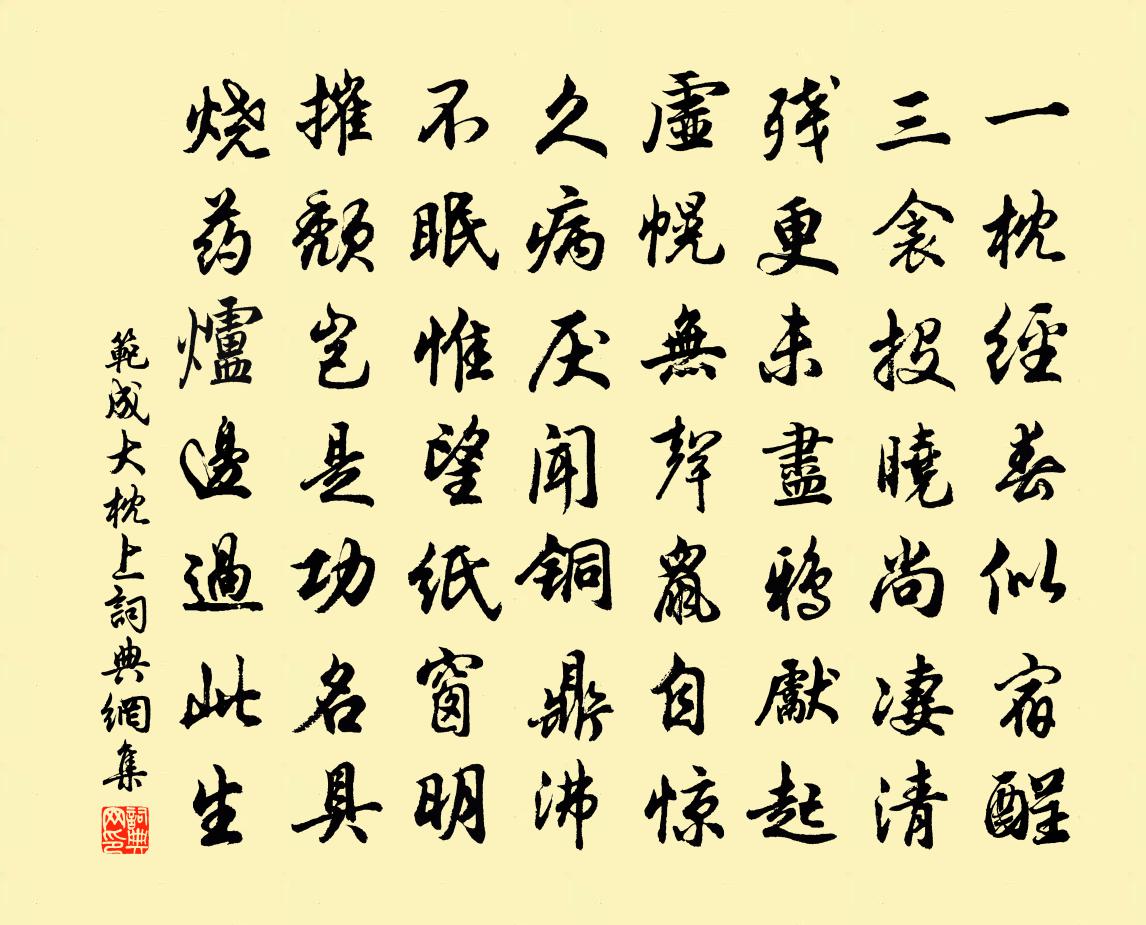 一枕經春似宿酲
三衾投曉尚凄清
残更未盡鴉獻起
虛幌無聲鼠自惊
久病厌闻铜鼎沸
不眠惟望纸窗明
摧颓豈是功名具
烧药爐邊過此生
範成大枕上詞典網集
詞典网印